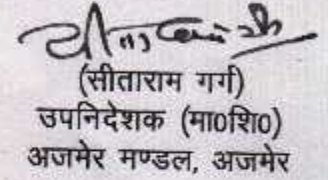 (सीताराम गर्ग)
उपनिदेशक (मा०शि०)
अजमेर मण्डल, अजमेर